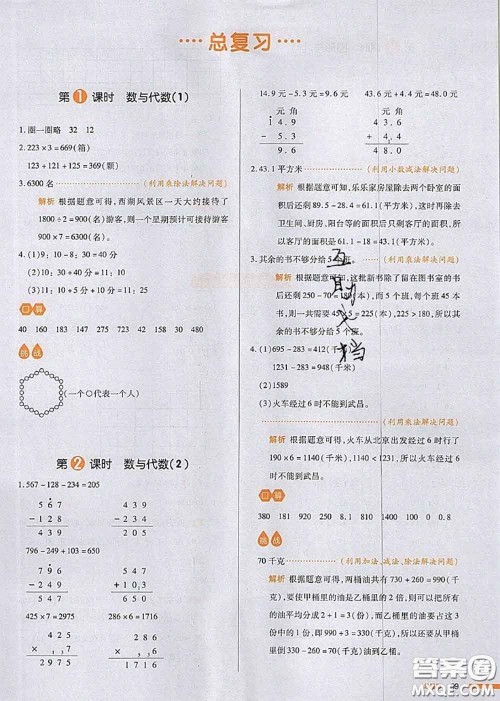 总复习
第1课时 数与代数(1)
1.圈一圈略 32 12
2.223×3=669(箱)
123+121+125=369(颗)
3.6300名 (利用乘除法解决问题)
解析 根据题意可得,西湖风景区一天大约可接待
1800÷2=900(名)游客,则一个星期预计可接待游客
900×7=6300(名)。
4.(1)9:10-8:30=40分
(2)10:30+40分=11:10
(3)11:10+5分+10分=11:25
口算
40 160 183 147 275 723 42 158 30 480
挑战
(一个○代表一个人)
第2课时 数与代数(2)
1.567-128-234=205
567 439
-128 -234
439 205
796-249+53=600
796 547
-249 +53
547 600
425×7=2975
425
×7
2975
616×2=1232
616
×2
1232
14.9元-5.3元=9.6元 43.6元+4.4元=48.0元
元角 元角
14.9 43.6
-5.3 +4.4
9.6 48.0
2.43.1平方米 (利用小数减法解决问题)
解析 根据题意可知,乐乐家房屋除去两个卧室的面
积后还剩89.5-28.4=61.1(平方米),这时再除去
卫生间、厨房、阳台等的面积后只剩客厅的面积,所
以客厅的面积是61.1-18=43.1(平方米)。
3.其余的书不够分给5个班。 (利用乘法解决问题)
解析 根据题意可知,这批新书除了留在图书室的书
后还剩250-70=180(本),有5个班,每个班45本
书,则一共需要45×5=225(本),225>180,所
以,其余的书不够分给5个班。
4.(1)695-283=412(千米)
1231-283=948(千米)
(2)1589
(3)火车经过6时不能到武昌。
(利用乘法解决问题)
解析 根据题意可得,火车从北京出发经过6时行了
190×6=1140(千米),1140<1229,所以火车经过6
时不能到武昌。
口算
380 181 920 250 81 8100 1400 100 0 0.8
挑战
70千克 (利用加法、减法、除法解决问题)
解析 根据题意可得,两桶油共有730+260=990(千
克),要使甲桶里的油是乙桶里的2倍,则可以把所有
的油平均分成2+1=3(份),而乙桶里的油要占这3
份中的1份,即990÷3=330(千克),所以要从甲桶里
倒330-260=70(千克)油到乙桶。
答案圈
MXQE.COM